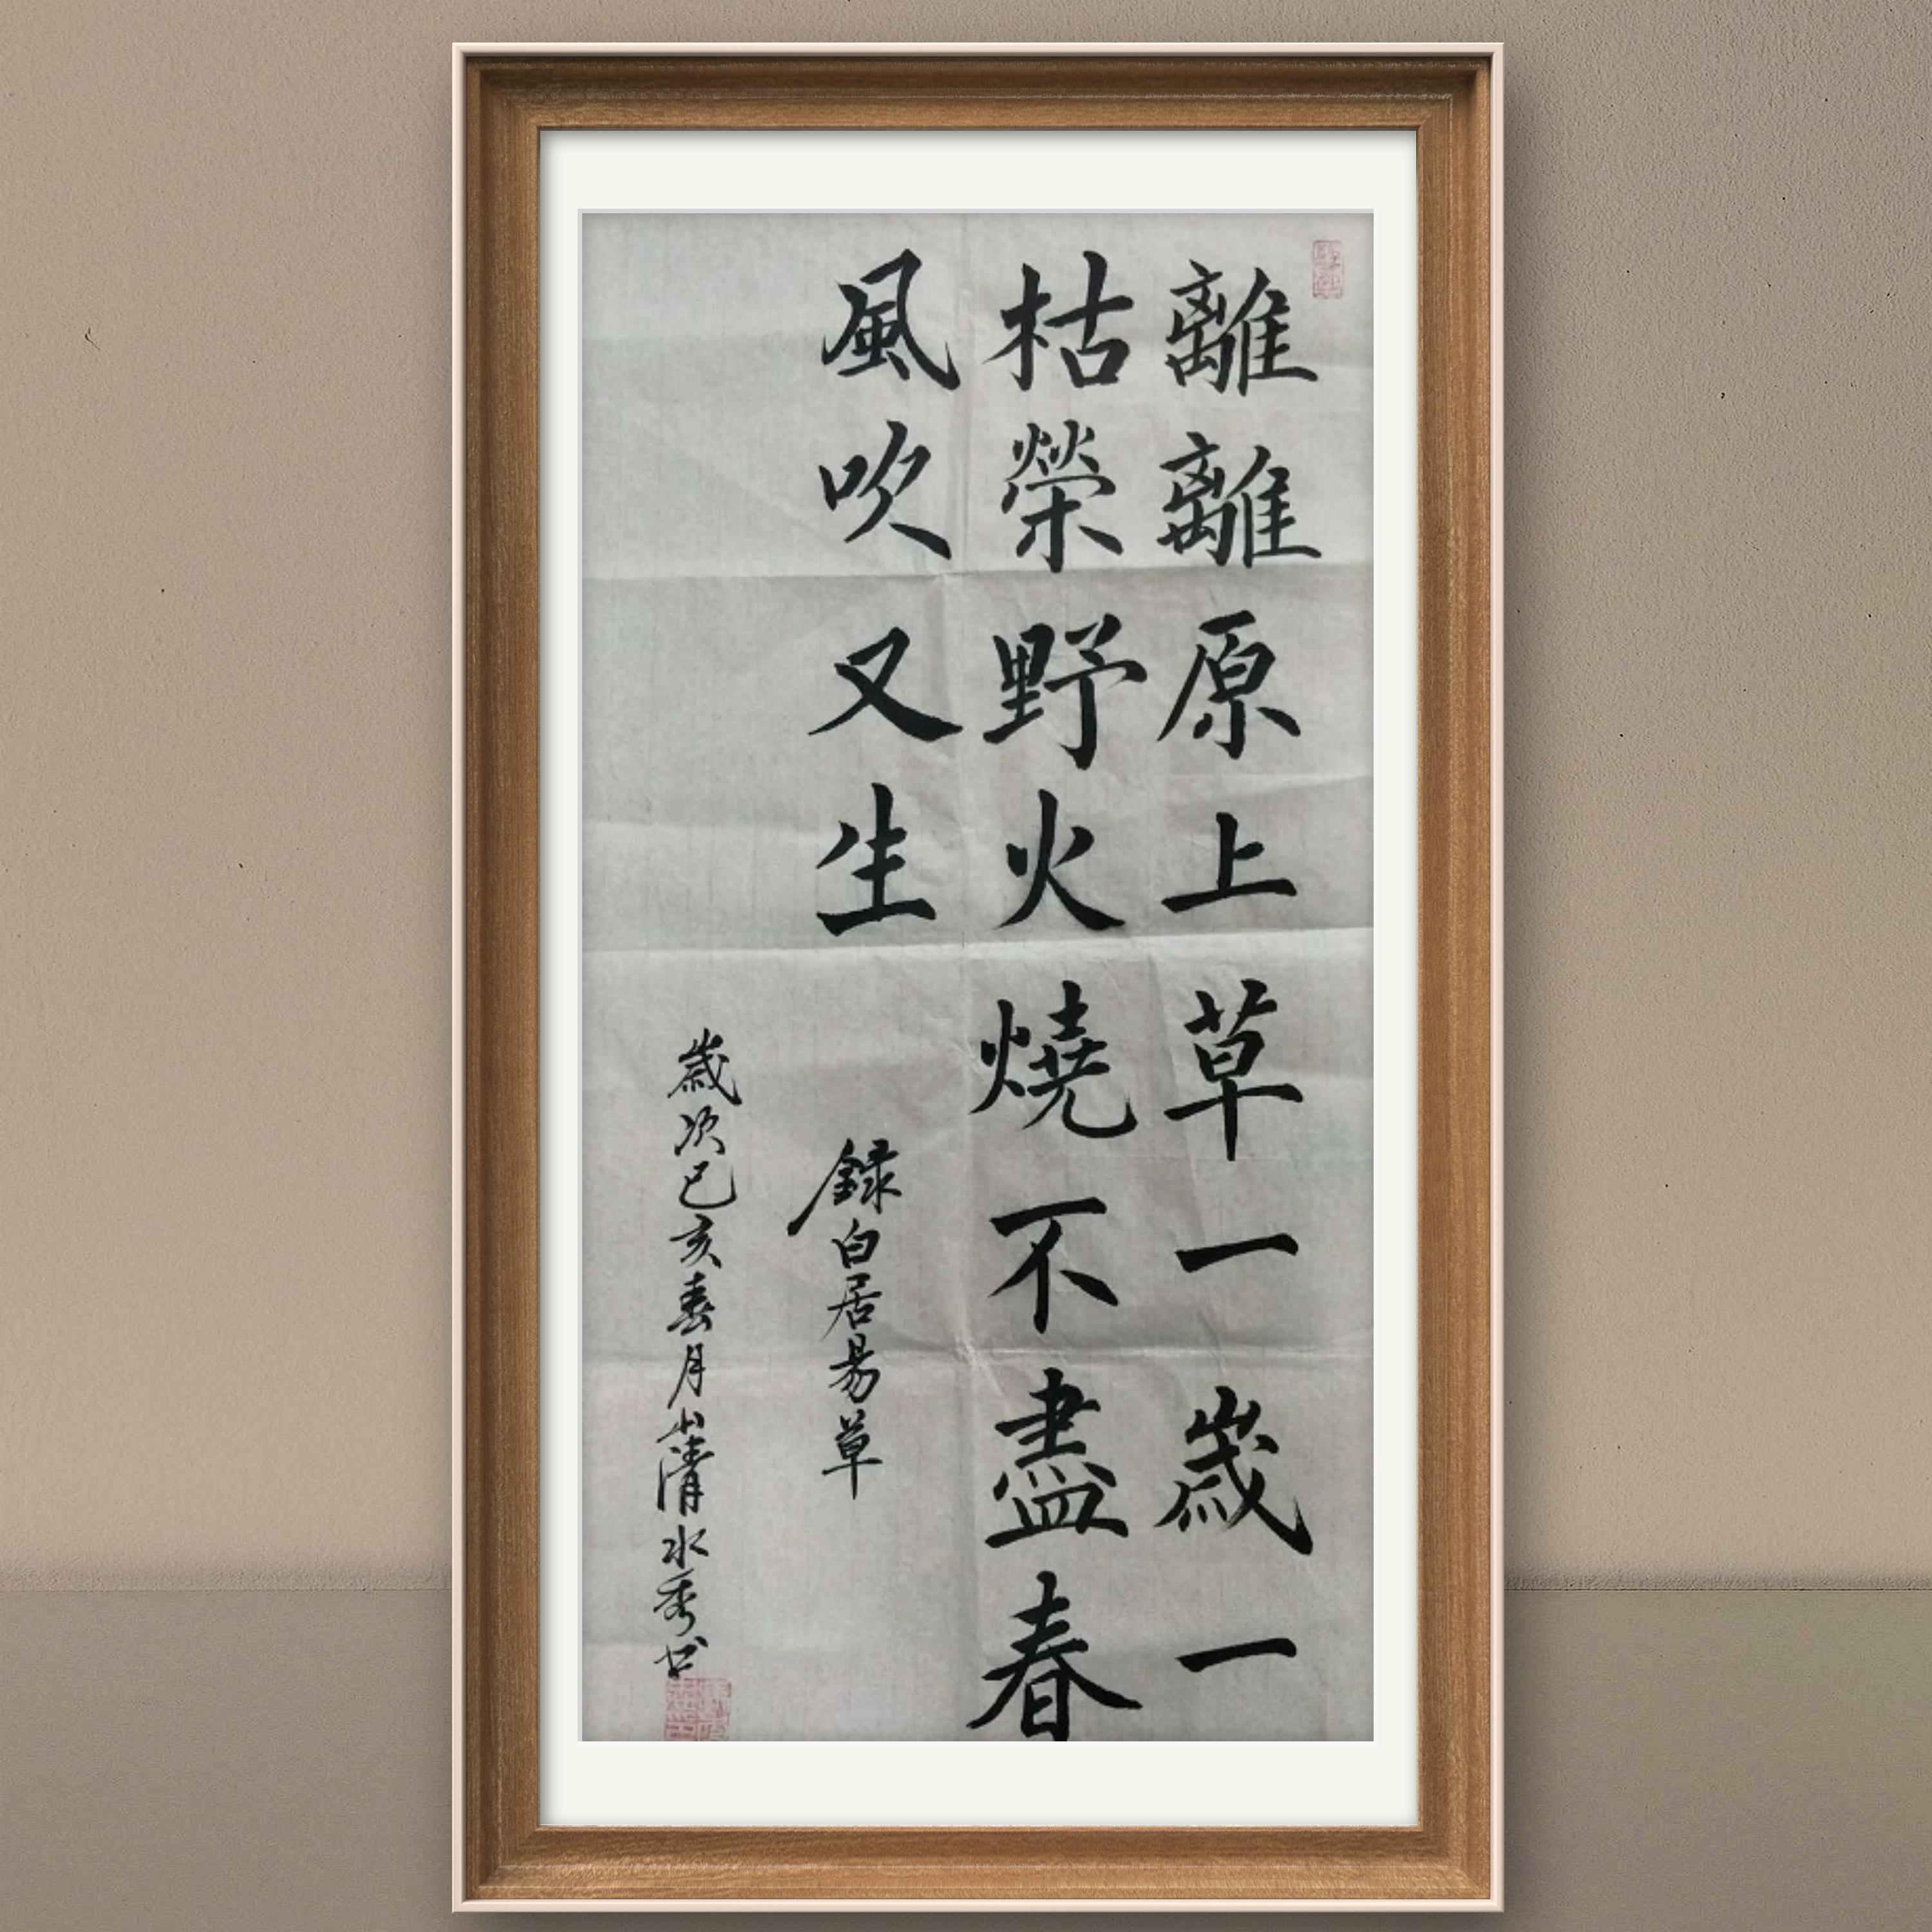 離離原上草一歲一
枯榮野火燒不盡春
風吹又生
錄白居易草
歲次己亥春月 清水秀書